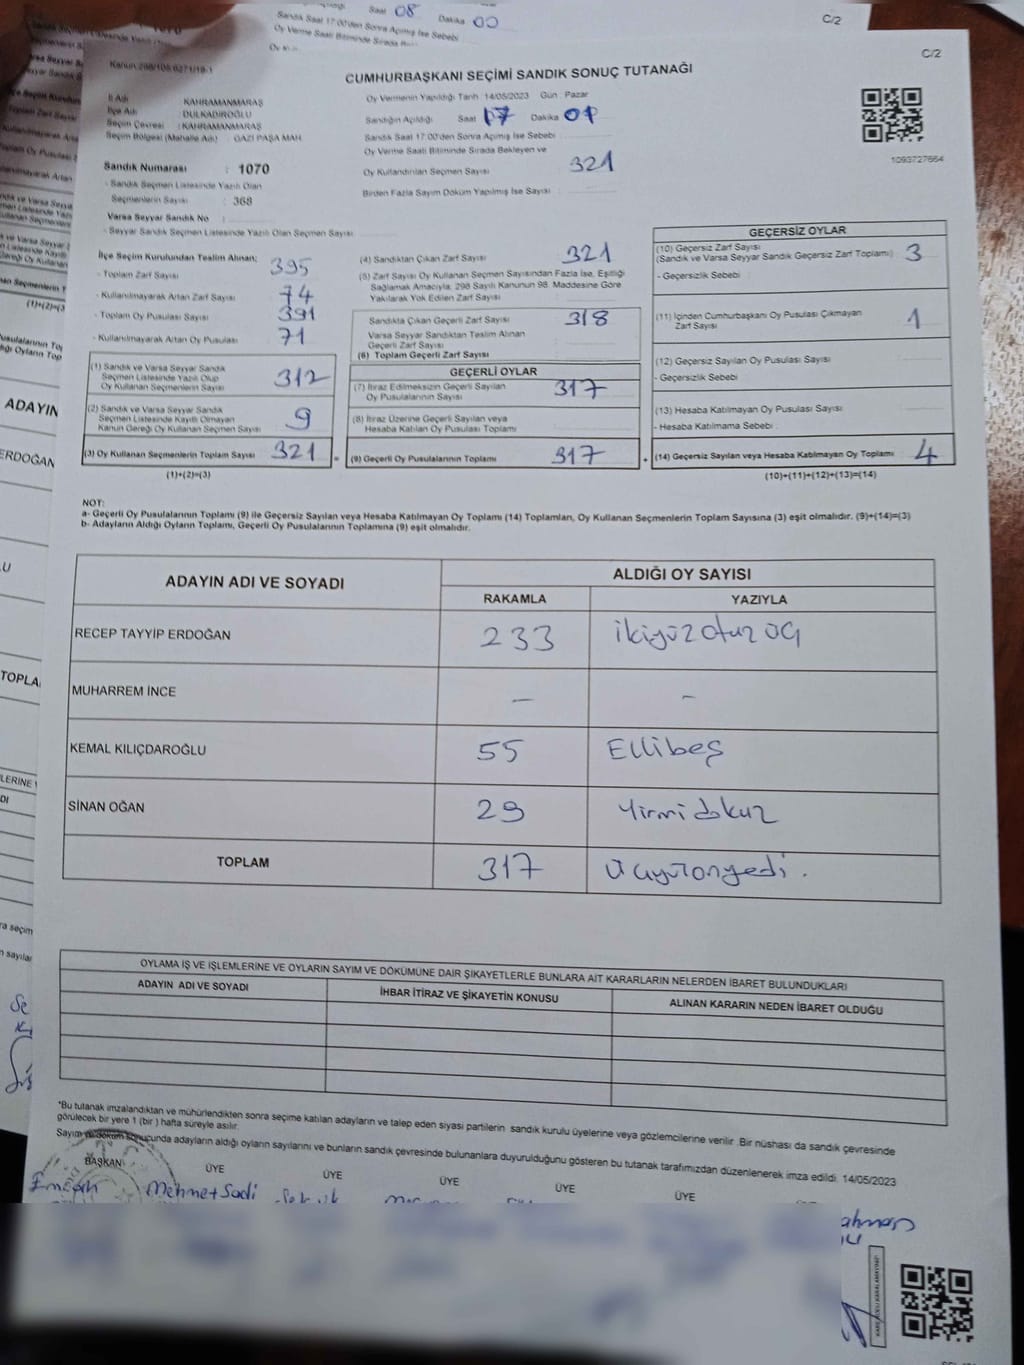 Saat 08 Dakika 00
Sandık Saat 17:00'den Sonra Açımış İse Sebebi
Oy Verme Saati Bitiminde Sırada
C/2
C/2
Kanun:298/105
CUMHURBAŞKANI SEÇİMİ SANDIK SONUÇ TUTANAĞI
İl Adı : KAHRAMANMARAŞ
İlçe Adı : DULKADİROĞLU
Seçim Çevresi : KAHRAMANMARAŞ
Seçim Bölgesi (Mahalle Adı) : GAZİ PAŞA MAH.
Oy Vermenin Yapıldığı Tarih :14/05/2023 Gün : Pazar
Sandığın Açıldığı Saat 17 Dakika
Sandık Saat 17:00'den Sonra Açımış İse Sebebi
Oy Verme Saati Bitiminde Sırada Bekleyen ve
Oy Kullandırılan Seçmen Sayısı 321
Birden Fazla Sayım Döküm Yapılmış İse Sayısı
1093727664
Sandık Numarası : 1070
- Sandık Seçmen Listesinde Yazılı Olan
Seçmenlerin Sayısı : 368
Varsa Seyyar Sandık No :
- Seyyar Sandık Seçmen Listesinde Yazılı Olan Seçmen Sayısı
İlçe Seçim Kurulundan Teslim Alınan;
- Toplam Zarf Sayısı 395
- Kullanılmayarak Artan Zarf Sayısı 74
- Toplam Oy Pusulası Sayısı 391
- Kullanılmayarak Artan Oy Pusulası 71
(1) Sandık ve Varsa Seyyar Sandık
Seçmen Listesinde Yazılı Olup
Oy Kullanan Seçmenlerin Sayısı 312
(2) Sandık ve Varsa Seyyar Sandık
Seçmen Listesinde Kayıtlı Olmayan
Kanun Gereği Oy Kullanan Seçmen Sayısı 9
(3) Oy Kullanan Seçmenlerin Toplam Sayısı 321
(1)+(2)=(3)
(4) Sandıktan Çıkan Zarf Sayısı 321
(5) Zarf Sayısı Oy Kullanan Seçmen Sayısından Fazla İse, Eşitliği
Sağlamak Amacıyla; 298 Sayılı Kanunun 98. Maddesine Göre
Yakılarak Yok Edilen Zarf Sayısı
Sandıkta Çıkan Geçerli Zarf Sayısı 318
Varsa Seyyar Sandıktan Teslim Alınan
Geçerli Zarf Sayısı
(6) Toplam Geçerli Zarf Sayısı
GEÇERLİ OYLAR
(7) İtiraz Edilmeksizin Geçerli Sayılan
Oy Pusulalarının Sayısı 317
(8) İtiraz Üzerine Geçerli Sayılan veya
Hesaba Katılan Oy Pusulası Toplamı
(9) Geçerli Oy Pusulalarının Toplamı 317
GEÇERSİZ OYLAR
(10) Geçersiz Zarf Sayısı
(Sandık ve Varsa Seyyar Sandık Geçersiz Zarf Toplamı) 3
- Geçersizlik Sebebi
(11) İçinden Cumhurbaşkanı Oy Pusulası Çıkmayan
Zarf Sayısı 1
(12) Geçersiz Sayılan Oy Pusulası Sayısı
- Geçersizlik Sebebi
(13) Hesaba Katılmayan Oy Pusulası Sayısı
- Hesaba Katılmama Sebebi :
(14) Geçersiz Sayılan veya Hesaba Katılmayan Oy Toplamı 4
(10)+(11)+(12)+(13)=(14)
NOT:
a- Geçerli Oy Pusulalarının Toplamı (9) ile Geçersiz Sayılan veya Hesaba Katılmayan Oy Toplamı (14) Toplamları, Oy Kullanan Seçmenlerin Toplam Sayısına (3) eşit olmalıdır. (9)+(14)=(3)
b- Adayların Aldığı Oyların Toplamı, Geçerli Oy Pusulalarının Toplamına (9) eşit olmalıdır.
ADAYIN ADI VE SOYADI ALDIĞI OY SAYISI
RAKAMLA YAZIYLA
RECEP TAYYİP ERDOĞAN 233 ikiyüzotuzüç
MUHARREM İNCE – –
KEMAL KILIÇDAROĞLU 55 Ellibeş
SİNAN OĞAN 29 Yirmidokuz
TOPLAM 317 Üçyüzonyedi.
OYLAMA İŞ VE İŞLEMLERİNE VE OYLARIN SAYIM VE DÖKÜMÜNE DAİR ŞİKAYETLERLE BUNLARA AİT KARARLARIN NELERDEN İBARET BULUNDUKLARI
ADAYIN ADI VE SOYADI İHBAR İTİRAZ VE ŞİKAYETİN KONUSU ALINAN KARARIN NEDEN İBARET OLDUĞU
*Bu tutanak imzalandıktan ve mühürlendikten sonra seçime katılan adayların ve talep eden siyasi partilerin sandık kurulu üyelerine veya gözlemcilerine verilir. Bir nüshası da sandık çevresinde
görülecek bir yere 1 (bir) hafta süreyle asılır.
Sayım ve döküm sonucunda adayların aldığı oyların sayılarını ve bunların sandık çevresinde bulunanlara duyurulduğunu gösteren bu tutanak tarafımızdan düzenlenerek imza edildi. 14/05/2023
BAŞKAN ÜYE ÜYE ÜYE ÜYE ÜYE
Mehmet Sadi